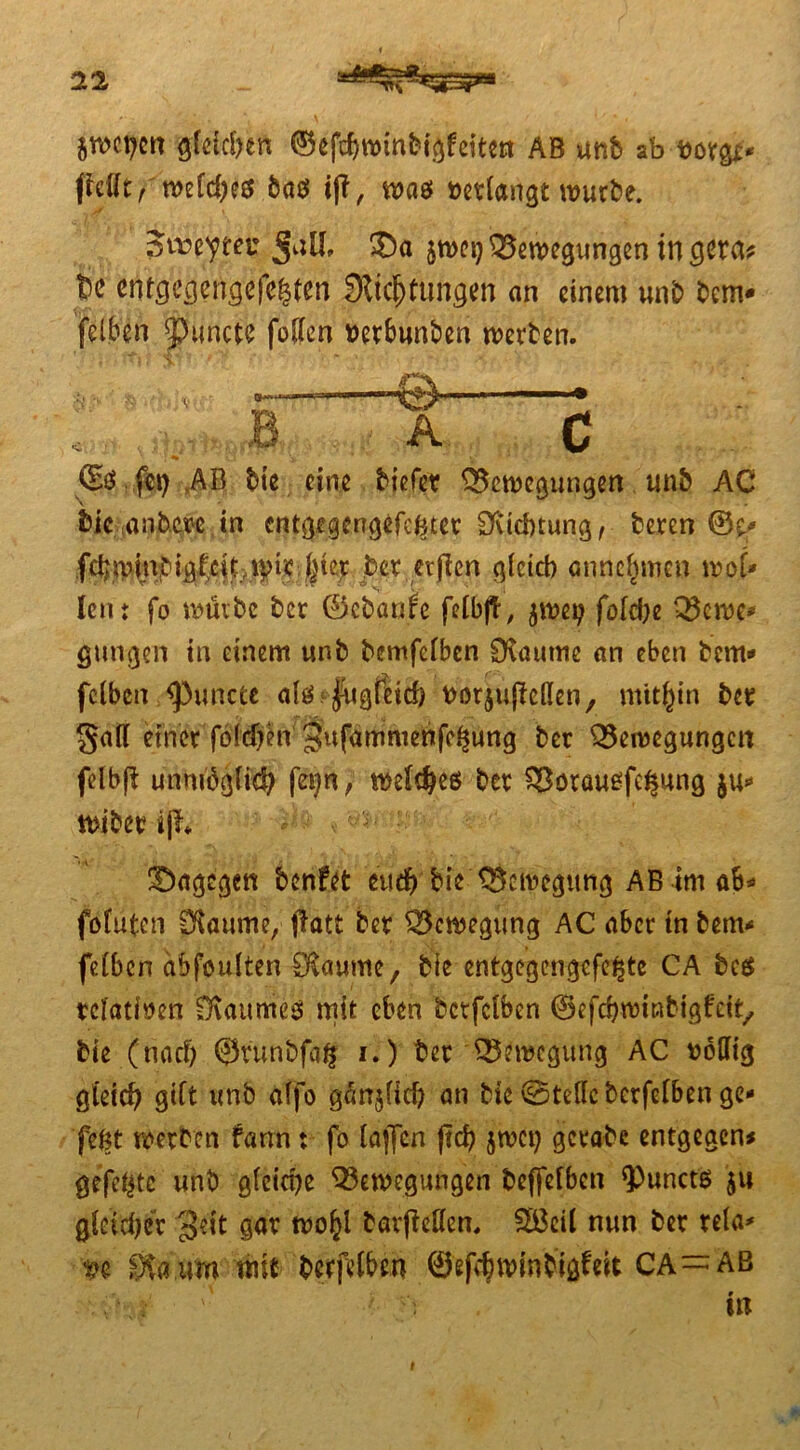 22
zweyen gleichen Geschwindigkeiten AB und ab vorge-
stellt, welches das ist, was verlangt wurde.
Zweyter Fall. Da zwey Bewegungen in gera-
de entgegengesetzten Richtungen an einem und dem-
selben Puncte sollen verbunden werden.
B A C
Es sey AB die eine dieser Bewegungen und AC
die andere in entgegengesetzter Richtung, deren Ge-
schwindigkeit, wir hier der ersten gleich annehmen wol-
len: so würde der Gedanke selbst, zwey solche Bewe-
gungen in einem und demselben Raume an eben dem-
selben Puncte als zugleich vorzustellen, mithin der
Fall einer solchen Zusammensetzung der Bewegungen
selbst unmöglich seyn, welches der Voraussetzung zu-
wider ist.
Dagegen denket euch die Bewegung AB im ab-
soluten Raume, statt der Bewegung AC aber in dem-
selben absoulten Raume, die entgegengesetzte CA des
relativen Raumes mit eben derselben Geschwindigkeit,
die (nach Grundsatz 1.) der Bewegung AC völlig
gleich gilt und also gänzlich an die Stelle derselben ge-
setzt werden kann: so lassen sich zwey gerade entgegen-
gesetzte und gleiche Bewegungen desselben Puncts zu
gleicher Zeit gar wohl darstellen. Weil nun der rela-
ve Raum mit derselben Geschwindigkeit CA=AB
in